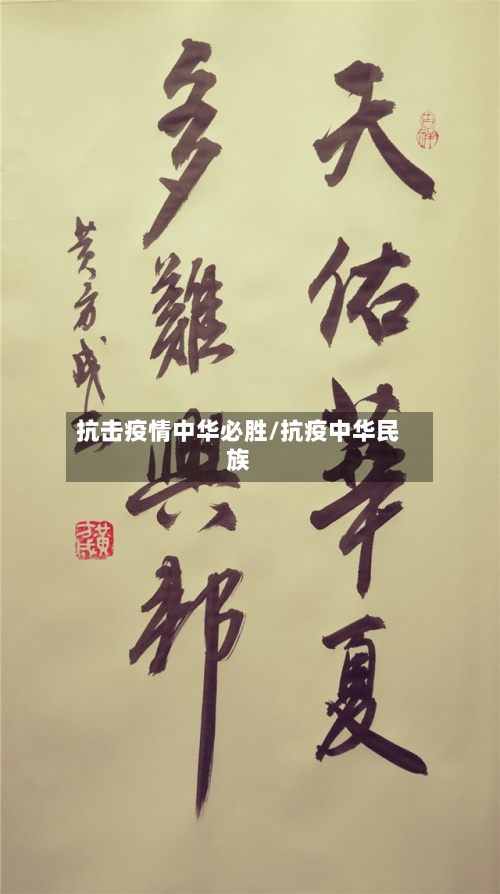 天佑華夏
多難興邦
黄方成
抗击疫情中华必胜/抗疫中华民
族